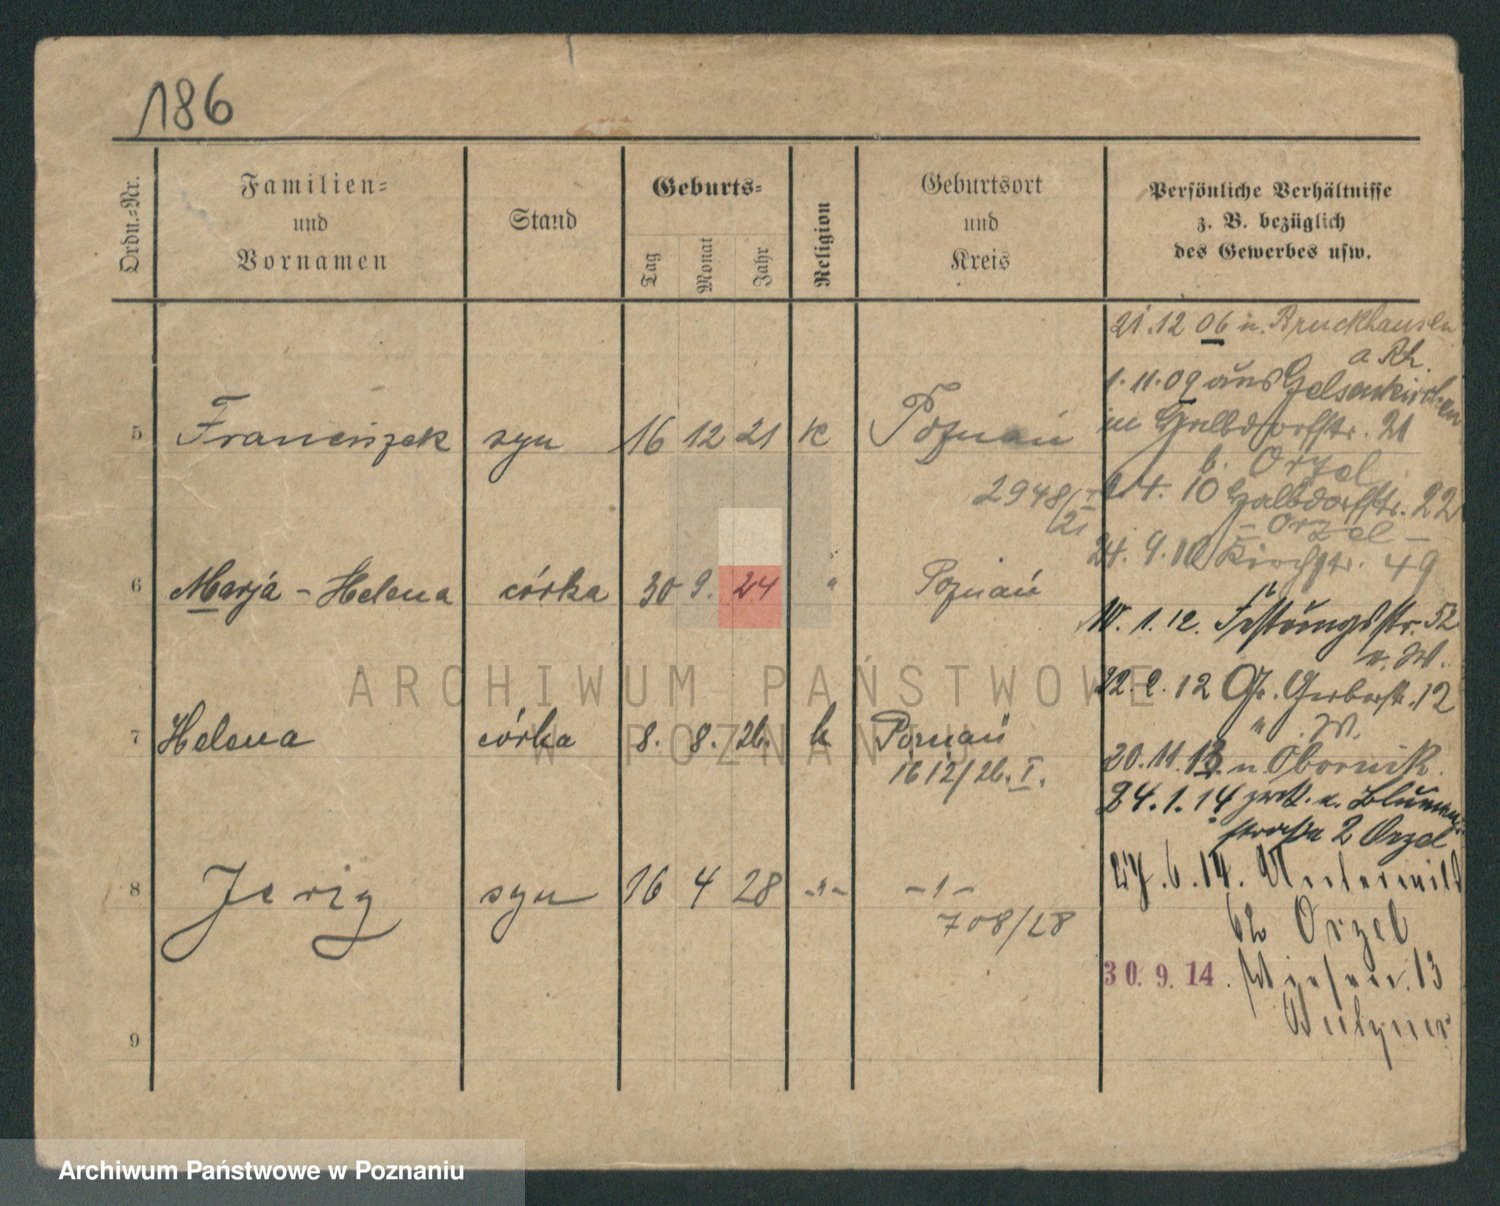 186
Ordn.-Nr.
Familien-
und
Vornamen
Stand
Geburts-
Tag
Monat
Jahr
Religion
Geburtsort
und
Kreis
Persönliche Verhältnisse
z. B. bezüglich
des Gewerbes usw.
21.12 06 n. Bruckhausen
a Rh.
1.11.09 aus Gelsenkirchen
in Halbdorfstr. 21
b. Orzel
5 Franciszek syn 16 12 21 K Poznań
2948/I
21
4. 10 Halbdorfstr. 22
- Orzel -
24. 9. 10 Kirchstr. 49
6 Marja - Helena córka 30 9. 24 " Poznań
10. 1. 12. Festungsstr. 52
v. W.
22. 2. 12 Gr. Gerberstr. 12
" W.
7 Helena córka 8. 8. 26. k Poznań
1612/26. I.
20. 11. 13. n Obornik.
24. 1. 14 zurk. v. Blumen-
strasse 2 Orzel
27. 6. 14. Unterwild
62 Orzel
8 Jerzy syn 16 4 28 -"- -"-
708/28
30. 9. 14. Wiesen. 13
9
ARCHIWUM PAŃSTWOWE
W POZNANIU
Archiwum Państwowe w Poznaniu